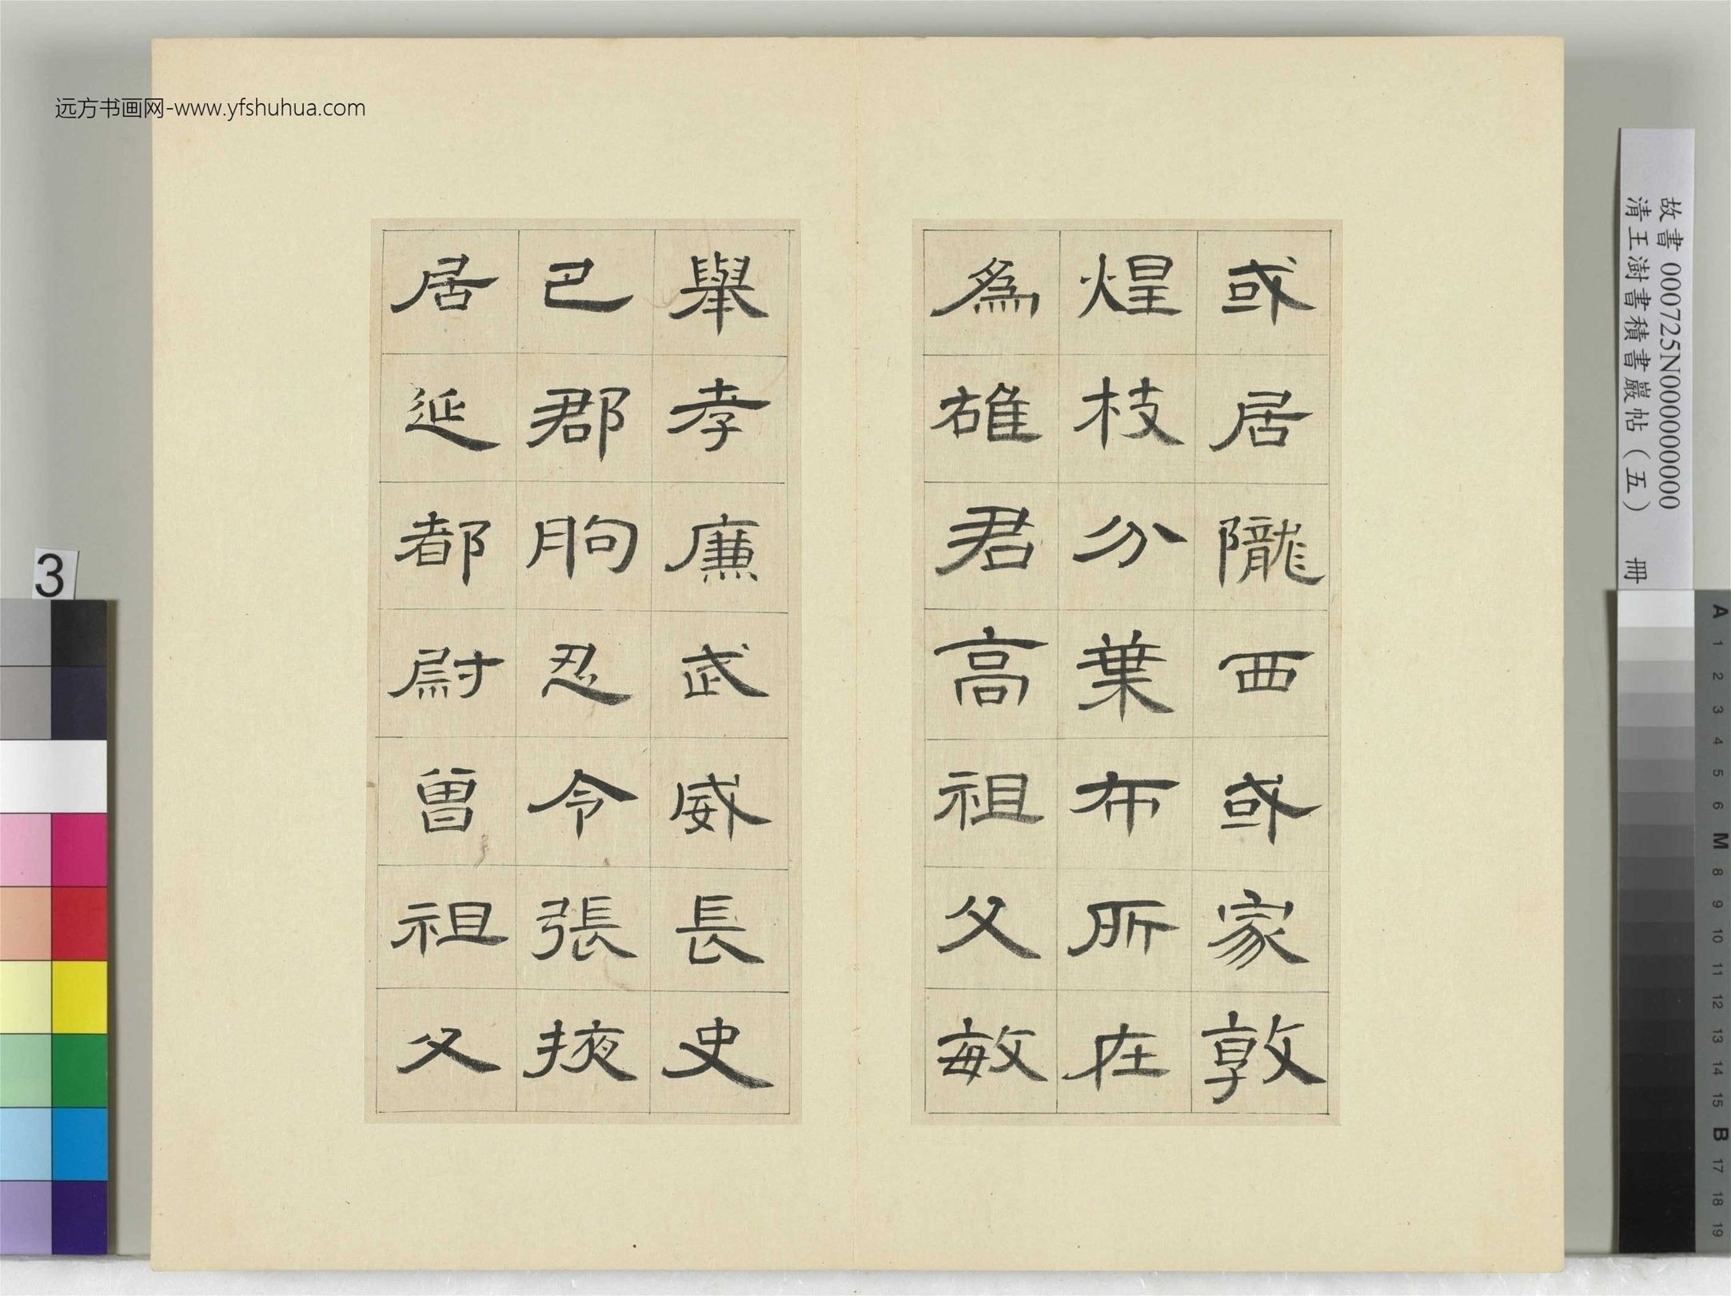 远方书画网-www.yfshuhua.com
或居隴西或家敦
煌枝分葉布所在
為雄君高祖父敏
舉孝廉武威長史
巴郡朐忍令張掖
居延都尉曾祖父
故書 000725N000000000
清王澍書積書巖帖（五） 冊
3
A
1
2
3
4
5
6
M
8
9
10
11
12
13
14
15
B
17
18
19